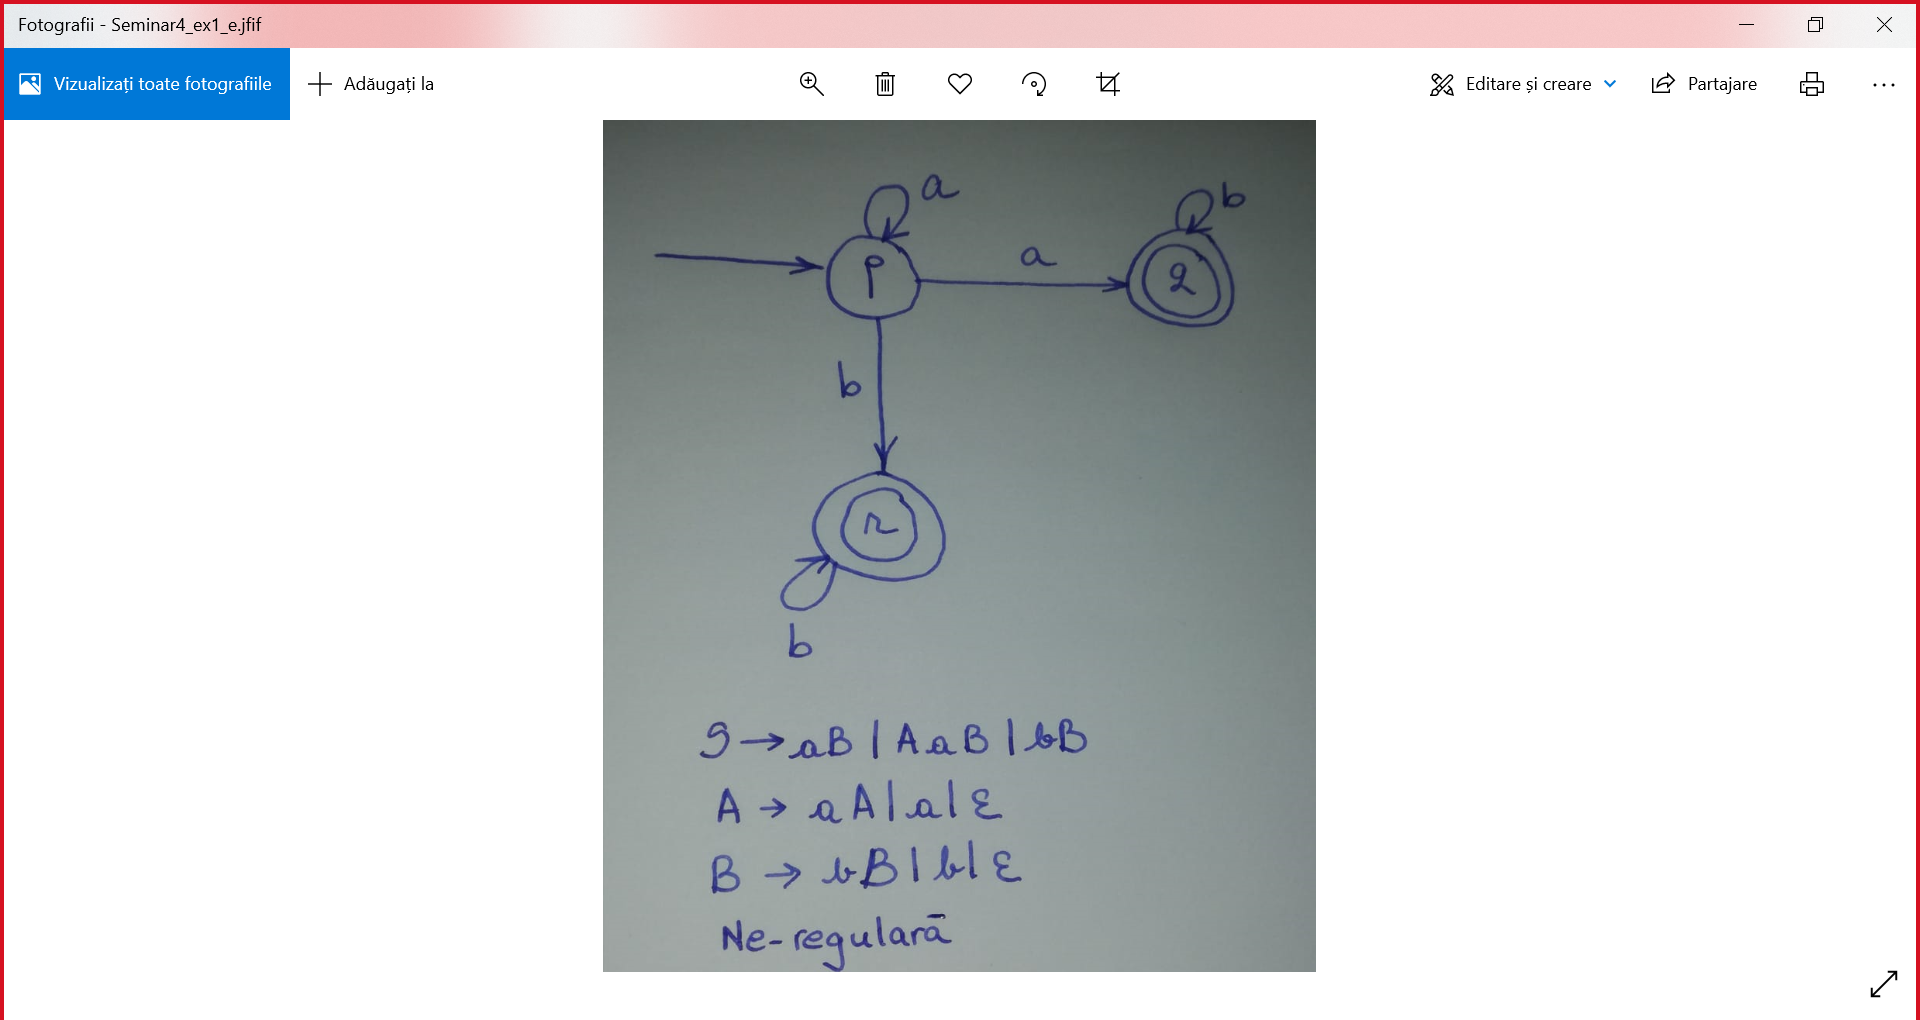 Fotografii - Seminar4_ex1_e.jfif
Vizualizați toate fotografiile
Adăugați la
Editare și creare
Partajare
a
b
p
a
q
b
r
b
S → aB | AaB | bB
A → aA | a | ε
B → bB | b | ε
Ne-regulară